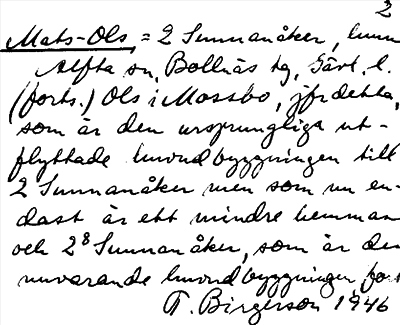 2
Mats-Ols = 2 Sunnanåker, hemm
Alfta sn, Bollnäs tg, Gävl. l.
(forts.) Ols i Mossbo, jfr detta,
som är den ursprungliga ut-
flyttade huvudbyggningen till
2 Sunnanåker men som nu en-
dast är ett mindre hemman
och 2⁸ Sunnanåker, som är den
nuvarande huvudbyggningen, fort
T. Birgerson 1946